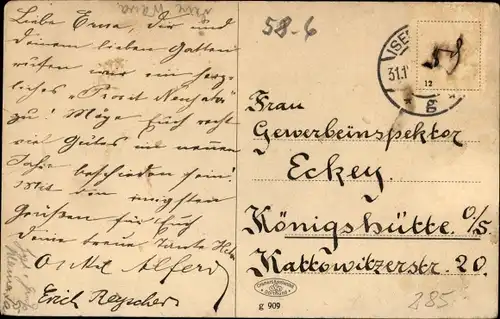 Liebe Erna, dir und
deinem lieben Gatten
rufen wir ein herz-
liches "Prosit Neujahr"
zu! Möge Euch recht
viel Gutes im neuen
Jahr beschieden sein!
Mit den innigsten
Grüßen für Euch
deine treue Tante
Onkel Alfred
Erich
58-6
ISE
31.1
12
* g *
Frau
Gewerbeinspektor
Eckey.
Königshütte. O/S
Kattowitzerstr. 20.
g 909
285.-